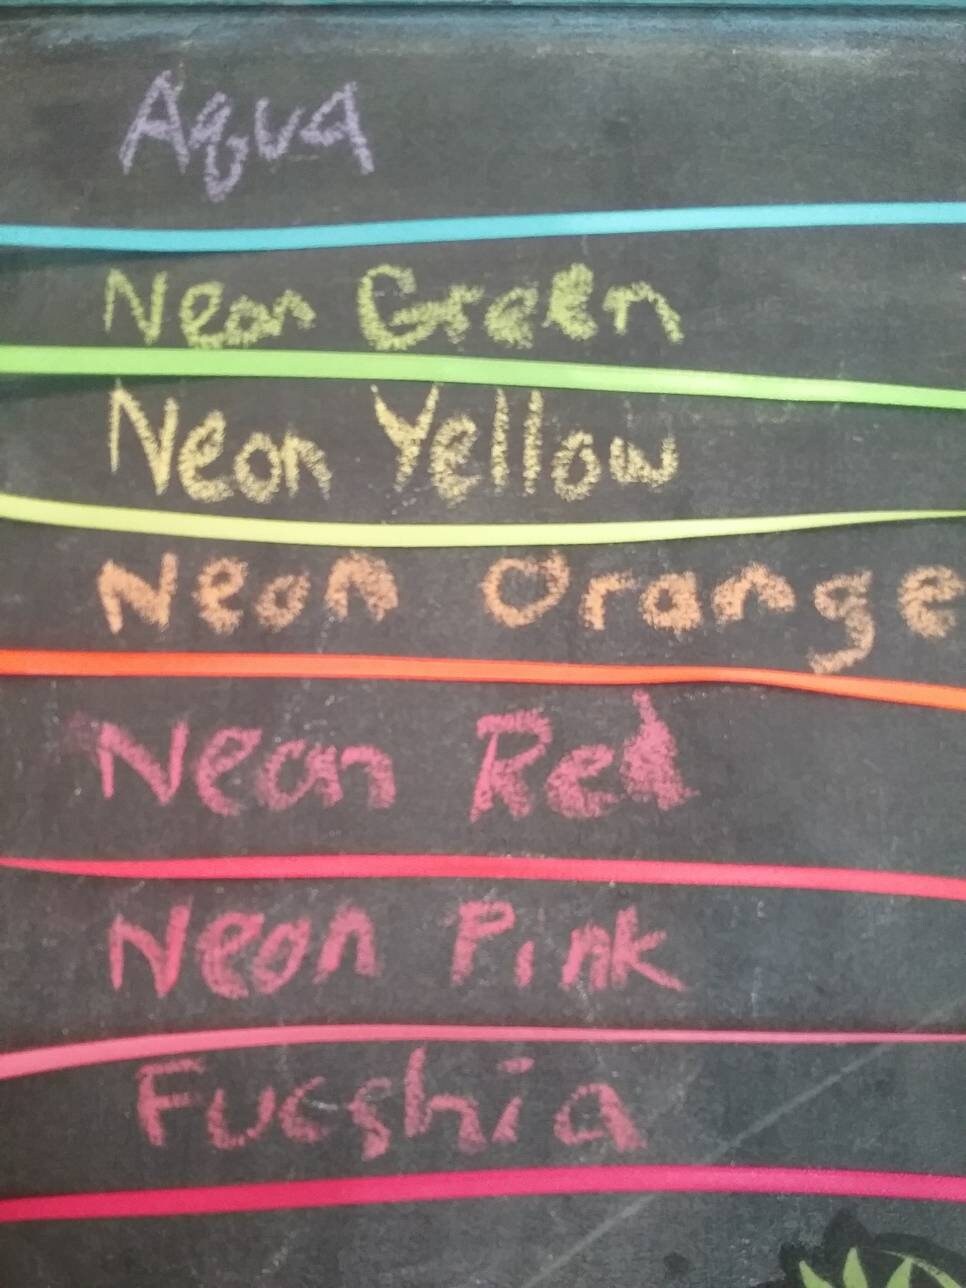 Aqua
Neon Green
Neon Yellow
Neon Orange
Neon Red
Neon Pink
Fucshia